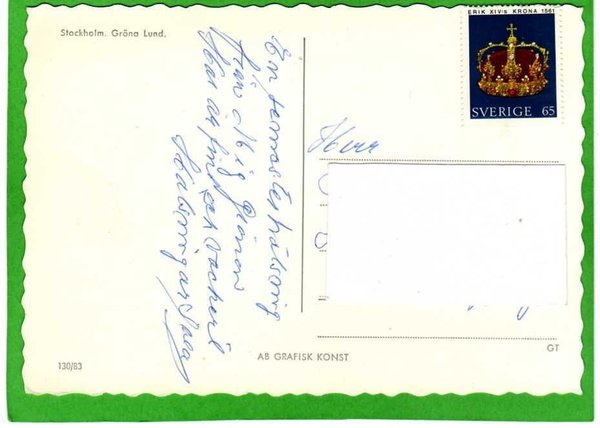 Stockholm. Gröna Lund.
ERIK XIV:s KRONA 1561
SVERIGE 65
En semesterhälsning
från Mig
Här är fint och vackert
Herr
130/83
AB GRAFISK KONST
GT